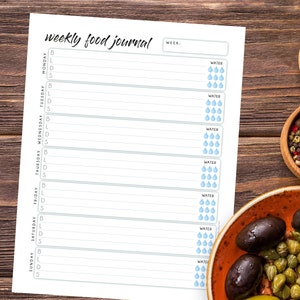 weekly food journal
WEEK:
MONDAY
B
L
D
S
WATER
TUESDAY
B
L
D
S
WATER
WEDNESDAY
B
L
D
S
WATER
THURSDAY
B
L
D
S
WATER
FRIDAY
B
L
D
S
WATER
SATURDAY
B
L
D
S
WATER
SUNDAY
B
L
D
S
WATER